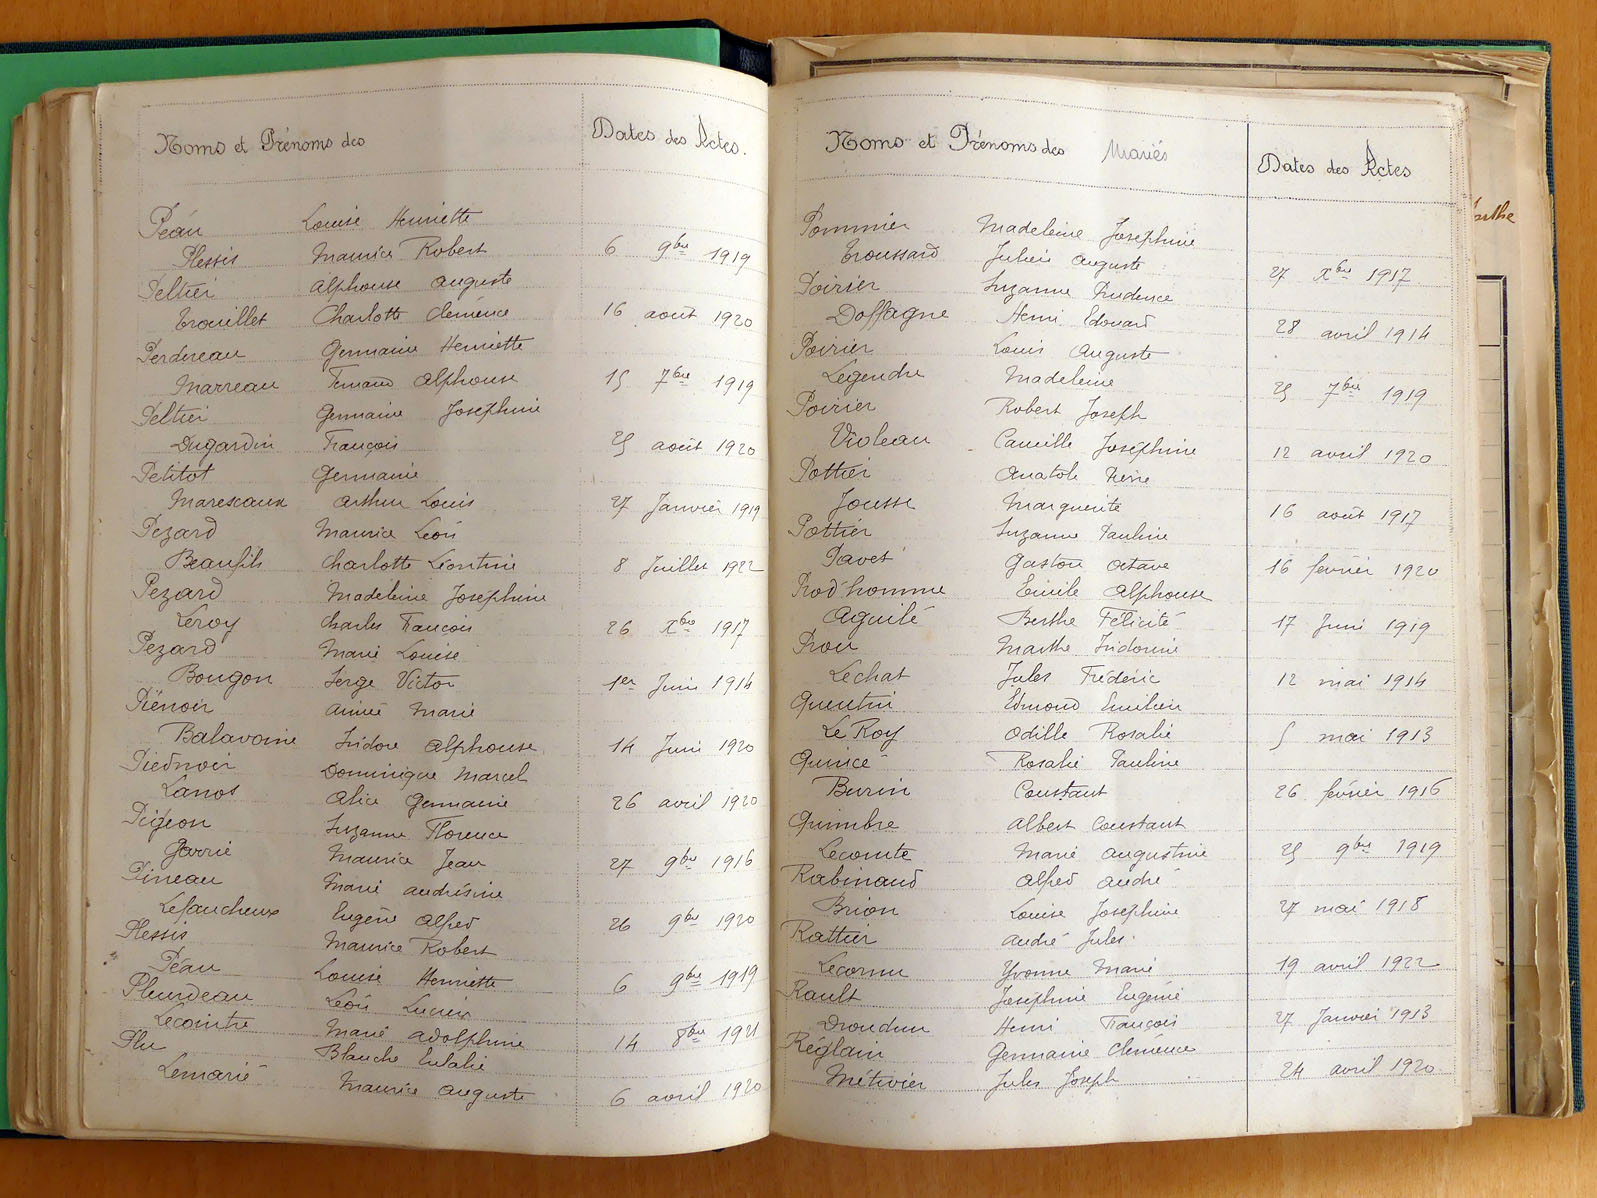 Noms et Prénoms des Dates des Actes.
Péan Louise Henriette
Plessis Maurice Robert 6 9bre 1919
Peltier Alphonse Auguste
Trouillet Charlotte Clémence 16 août 1920
Perdereau Germaine Henriette
Marreau Fernand Alphonse 15 7bre 1919
Peltier Germaine Joséphine
Dugardin François 25 août 1920
Petitot Germaine
Marescaux Arthur Louis 27 Janvier 1919
Pezard Maurice Léon
Beaufils Charlotte Léontine 8 Juillet 1922
Pezard Madeleine Joséphine
Leroy Charles François 26 Xbre 1917
Pezard Marie Louise
Bougon Serge Victor 1er Juin 1914
Piénoir Aimée Marie
Balavoine Isidore Alphonse 14 Juin 1920
Piednoir Dominique Marcel
Lanos Alice Germaine 26 avril 1920
Pigeon Suzanne Florence
Garrié Maurice Jean 27 9bre 1916
Pineau Marie Andrésine
Lefaucheux Eugène Alfred 26 9bre 1920
Plessis Maurice Robert
Péan Louise Henriette 6 9bre 1919
Pleurdeau Léon Lucien
Lecointre Marie Adolphine 14 8bre 1921
Plu Blanche Eulalie
Lemarié Maurice Auguste 6 avril 1920
Noms et Prénoms des Mariés Dates des Actes
Pommier Madeleine Joséphine
Troussard Julien Auguste 27 Xbre 1917
Poirier Suzanne Prudence
Doffagne Henri Edouard 28 avril 1914
Poirier Louis Auguste
Legendre Madeleine 25 7bre 1919
Poirier Robert Joseph
Violeau Camille Joséphine 12 avril 1920
Pottier Anatole Pierre
Jousse Marguerite 16 août 1917
Pottier Suzanne Pauline
Pavet Gaston Octave 16 février 1920
Prod'homme Emile Alphonse
Aguilé Berthe Félicité 17 Juin 1919
Prou Marthe Isidorine
Lechat Jules Fréderic 12 mai 1914
Quentin Edmond Emilien
Le Roy Odille Rosalie 5 mai 1913
Quincé Rosalie Pauline
Burin Constant 26 février 1916
Quimbre Albert Constant
Lecomte Marie Augustine 25 9bre 1919
Rabinaud Alfred André
Brion Louise Joséphine 27 mai 1918
Rattier André Jules
Lecornu Yvonne Marie 19 avril 1922
Rault Joséphine Eugénie
Droudun Henri François 27 Janvier 1913
Réglain Germaine Clémence
Métivier Jules Joseph 24 avril 1920